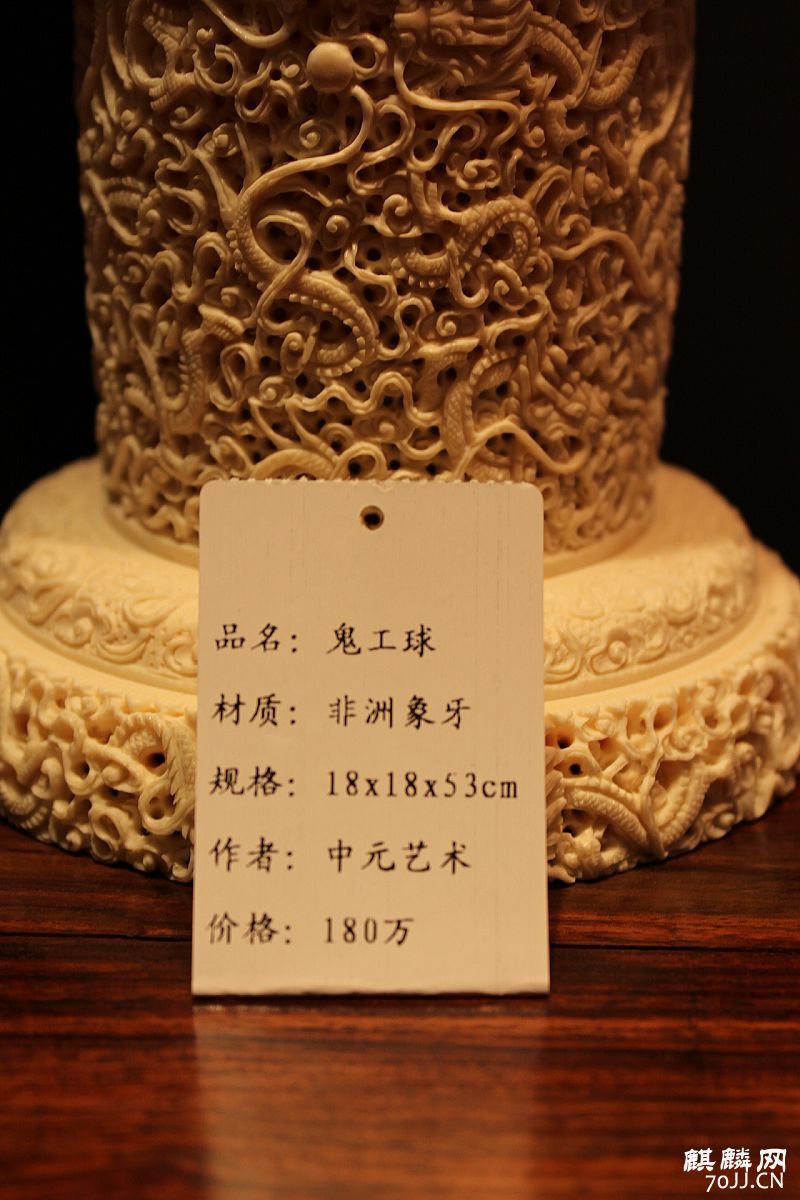 品名：鬼工球
材质：非洲象牙
规格：18x18x53cm
作者：中元艺术
价格：180万
麒麟网
70JJ.CN